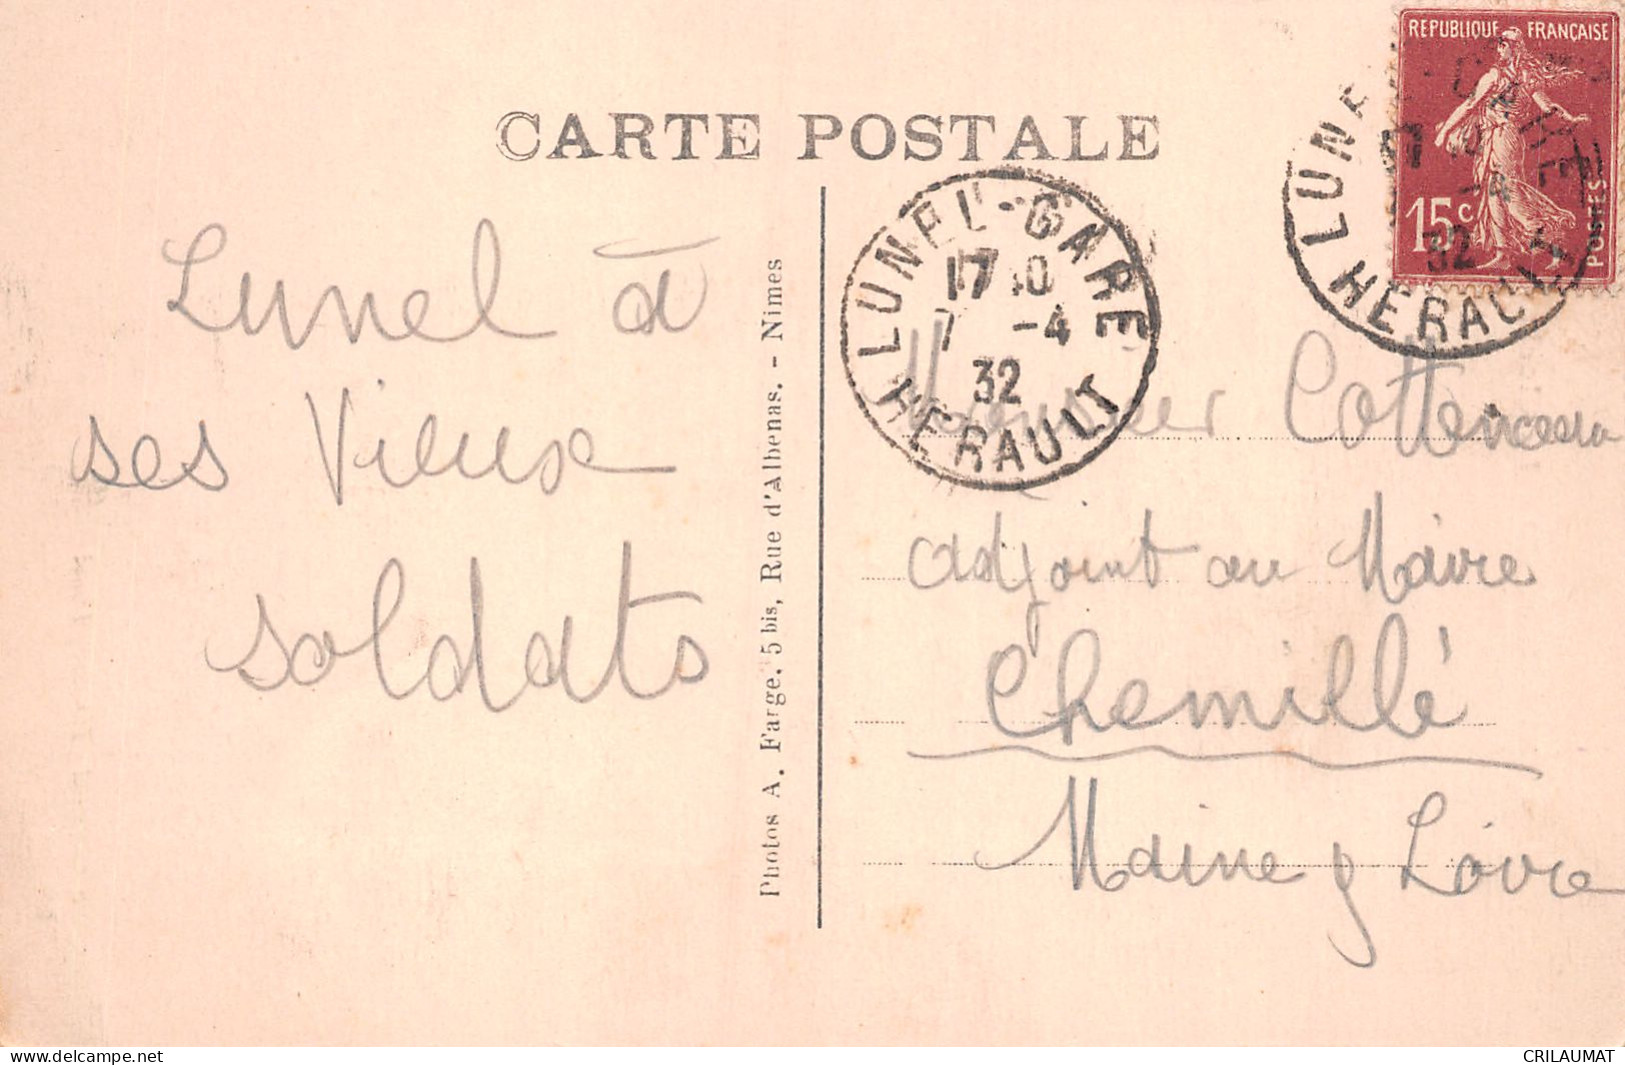 CARTE POSTALE
REPUBLIQUE FRANÇAISE
15c
POSTES
LUNEL-GARE
17 10
7 -4
32
HERAULT
LUNEL-GARE
32
HERAULT
Lunel à
ses Vieux
soldats
Photos A. Farge. 5 bis, Rue d'Albenas. - Nimes
Monsieur Cottenceau
adjoint au Maire
Chemillé
Maine & Loire
www.delcampe.net
CRILAUMAT